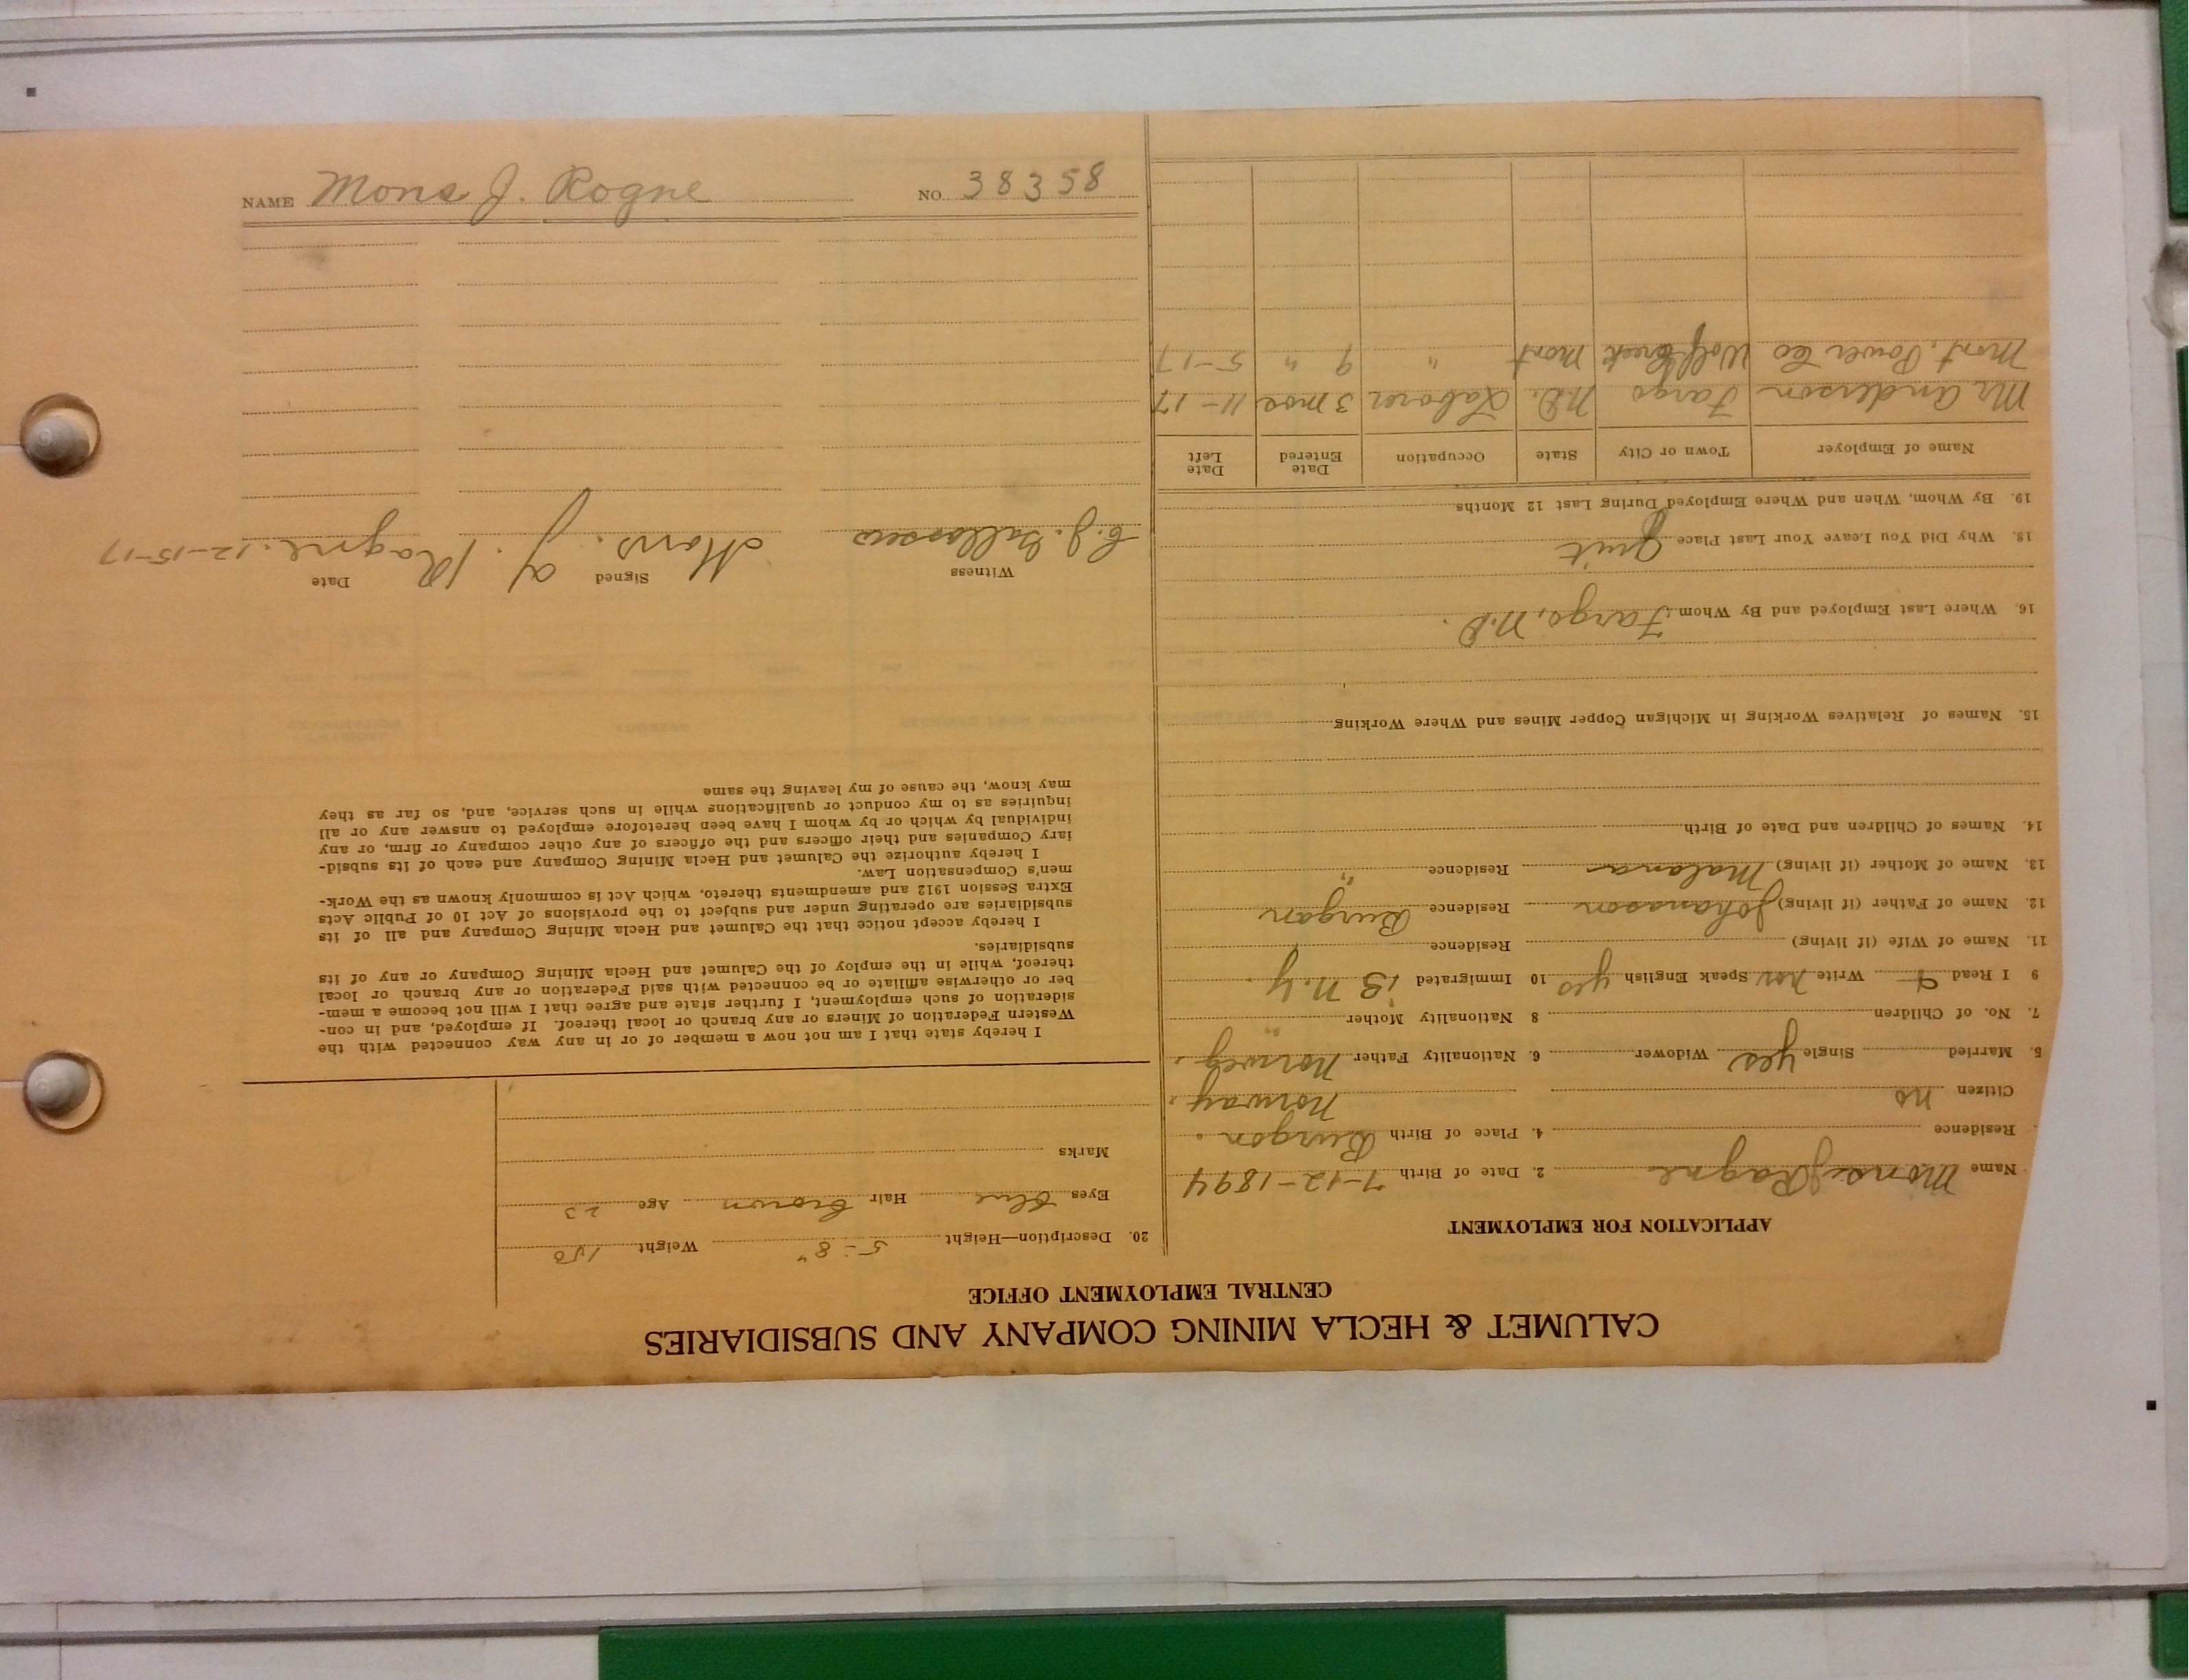 CALUMET & HECLA MINING COMPANY AND SUBSIDIARIES
CENTRAL EMPLOYMENT OFFICE
APPLICATION FOR EMPLOYMENT
Name Mons J Rogne 2. Date of Birth 7-12-1894
Residence 4. Place of Birth Burgon.
Citizen no Norway.
5. Married Single yes Widower 6. Nationality Father Norweg.
7. No. of Children 8 Nationality Mother "
9 I Read Write nor Speak English yes 10 Immigrated 13 N.Y.
11. Name of Wife (if living) Residence
12. Name of Father (if living) Johanason Residence Burgon
13. Name of Mother (if living) Malana Residence "
14. Names of Children and Date of Birth
15. Names of Relatives Working in Michigan Copper Mines and Where Working
16. Where Last Employed and By Whom Fargo, N.D.
18. Why Did You Leave Your Last Place Quit
19. By Whom, When and Where Employed During Last 12 Months
Name of Employer Town or City State Occupation Date Entered Date Left
Mr Anderson Fargo N.D. Laborer 3 mos 11-17
Mont. Power Co Wolf Creek Mont " 9 " 5-17
20. Description—Height 5-8" Weight 150
Eyes Blue Hair Brown Age 23
Marks
I hereby state that I am not now a member of or in any way connected with the
Western Federation of Miners or any branch or local thereof. If employed, and in con-
sideration of such employment, I further state and agree that I will not become a mem-
ber or otherwise affiliate or be connected with said Federation or any branch or local
thereof, while in the employ of the Calumet and Hecla Mining Company or any of its
subsidiaries.
I hereby accept notice that the Calumet and Hecla Mining Company and all of its
subsidiaries are operating under and subject to the provisions of Act 10 of Public Acts
Extra Session 1912 and amendments thereto, which Act is commonly known as the Work-
men's Compensation Law.
I hereby authorize the Calumet and Hecla Mining Company and each of its subsid-
iary Companies and their officers and the officers of any other company or firm, or any
individual by which or by whom I have been heretofore employed to answer any or all
inquiries as to my conduct or qualifications while in such service, and, so far as they
may know, the cause of my leaving the same
Witness Signed Date
C.J. Mons. J. Rogne. 12-15-17
NAME Mons J. Rogne NO. 38358